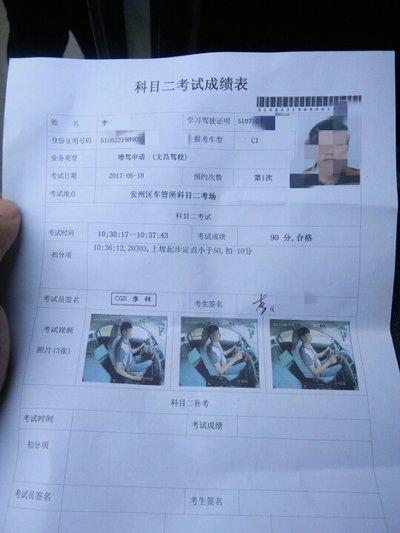 科目二考试成绩表
姓 名 李 学习驾驶证明 5107
身份证明号码 51082319890 报考车型 C1
业务类型 增驾申请 (文昌驾校)
考试日期 2017-05-18 预约次数 第1次
考试地点 安州区车管所科目二考场
科目二考试
考试时间 10:30:17--10:37:43 考试成绩 90 分,合格
扣分项 10:36:12,20303,上坡起步定点小于50,扣-10分
考试员签名 CGS 李 林 考生签名
考试视频
照片(3张)
科目二补考
考试时间 考试成绩
扣分项
考试员签名 考生签名